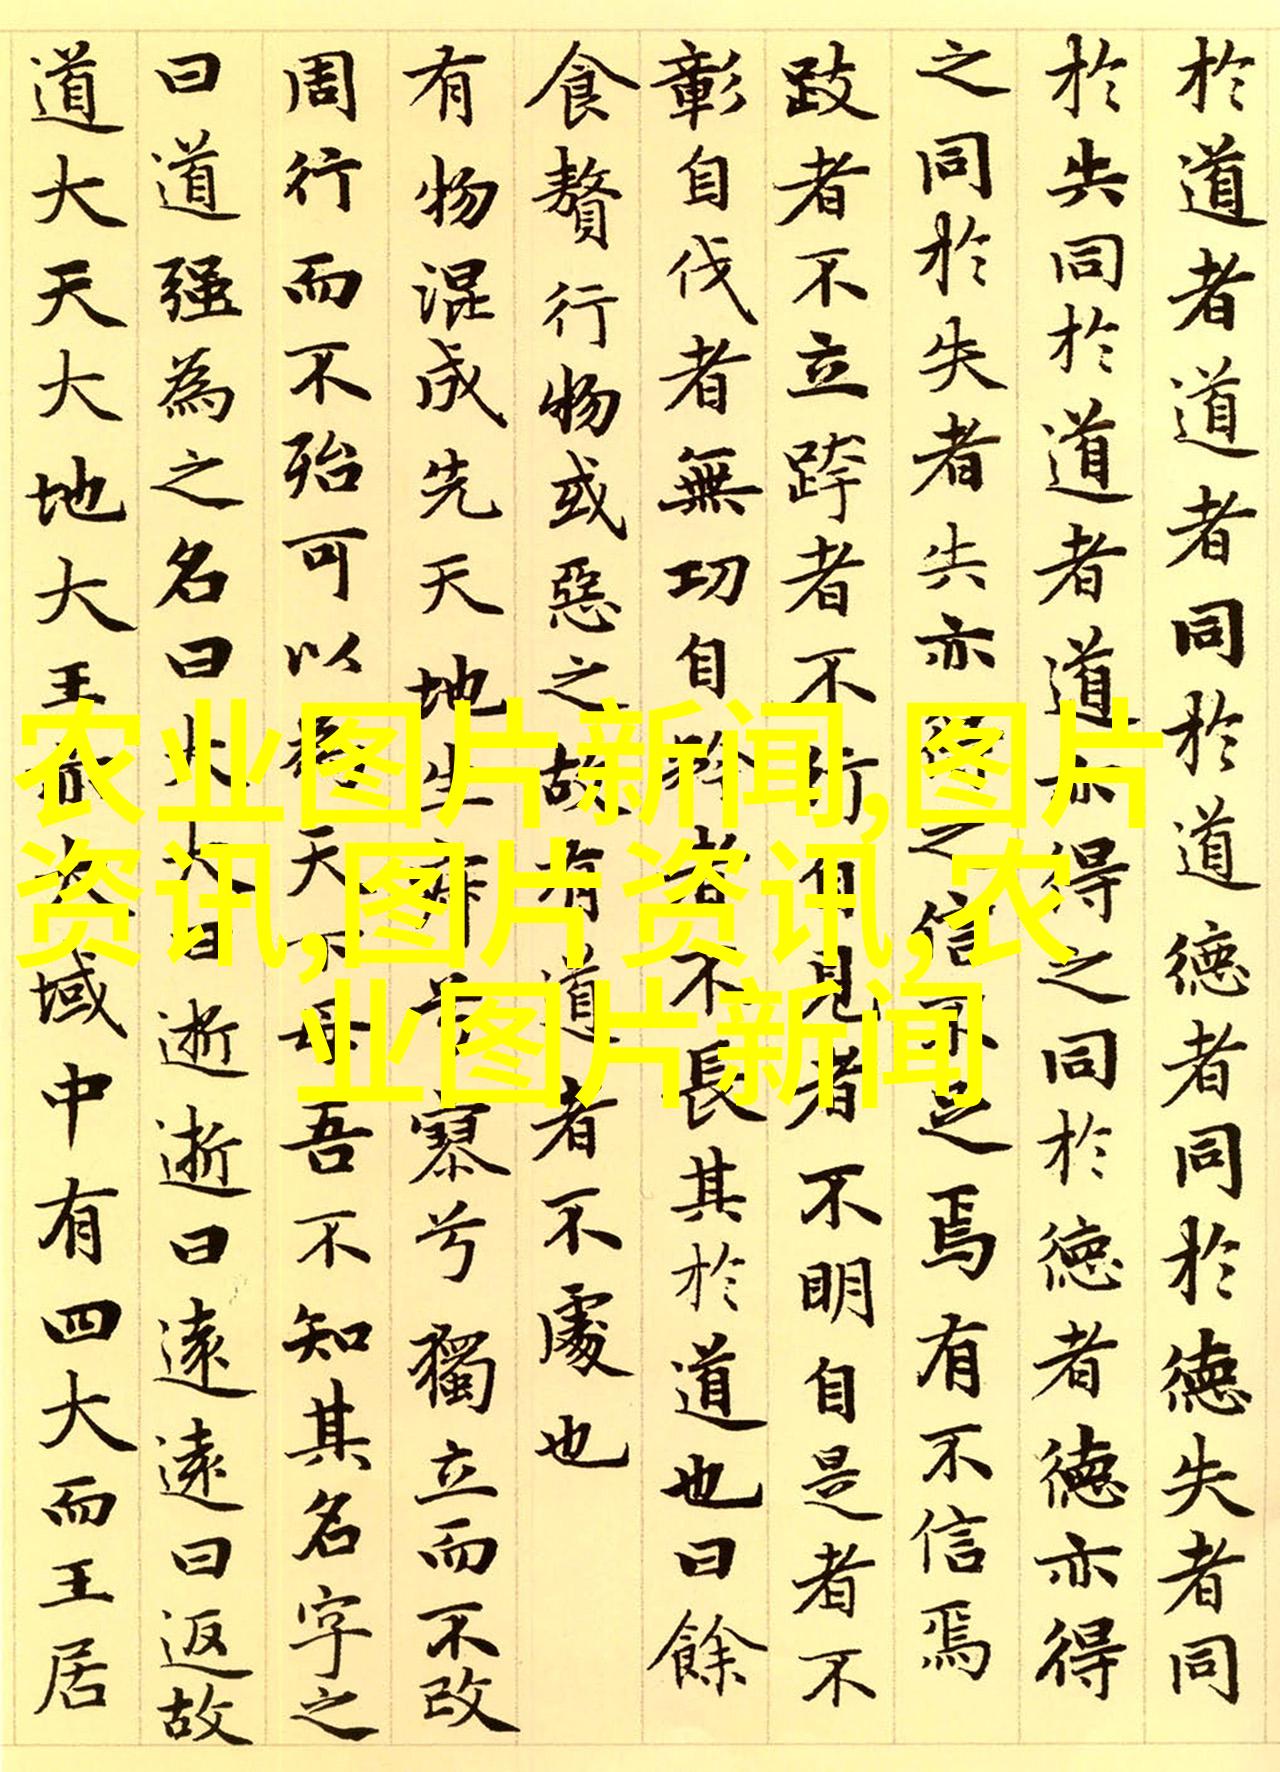 於道者道者同於道德者同於德失者同
於失同於道者道亦得之同於德者德亦得
之同於失者失亦得之信不足焉有不信焉
跂者不立跨者不行自見者不明自是者不
彰自伐者無功自矜者不長其於道也曰餘
食贅行物或惡之故有道者不處也
有物混成先天地生寂兮寥兮獨立而不改
周行而不殆可以為天下母吾不知其名字之
曰道强為之名曰大大曰逝逝曰遠遠曰返故
道大天大地大王亦大域中有四大而王居
农业图片新闻,图片
资讯,图片资讯,农
业图片新闻